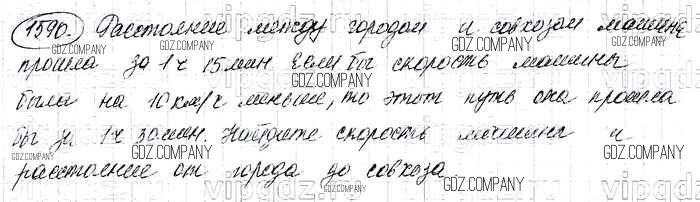 1590. Расстояние между городом и совхозом машина
прошла за 1 ч 15 мин Если бы скорость машины
была на 10 км/ч меньше, то этот путь она прошла
бы за 1 ч 30 мин. Найдите скорость машины и
расстояние от города до совхоза
GDZ.COMPANY
GDZ.COMPANY
GDZ.COMPANY
GDZ.COMPANY
GDZ.COMPANY
GDZ.COMPANY
GDZ.COMPANY
GDZ.COMPANY